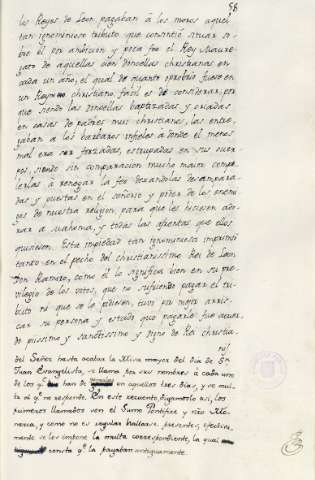 58
los Reyes de Leon, pagaban à los moros aquel
tan ignominioso tributo que consintió situar so-
bre él por ambicion y poca fée el Rey Maure-
gato de aquellas cien doncellas christianas en
cada un año, el qual de quanto oprobrio fuese en
un Reyno christiano, facil es de considerar, por
que siendo las doncellas baptizadas y criadas
en casas de padres mui christianos, las entre-
gaban à los barbaros infieles à donde el menos
mal era ser forzadas, estrupadas en sus cuer-
pos, siendo sin comparacion mucho maior compe-
lerlas à renegar la fée dexandolas desampara-
das y puestas en el señorio y poder de los enemi-
gos de nuestra religion, para que les hiciesen ado-
rar a Mahoma, y todas las afrentas que ellos
quisiesen. Esta impiedad tan ignominiosa imprimi-
tando en el pecho del christianissimo Rei de Leon
Don Ramiro, como él lo significa bien en su pri-
vilegio de los votos, que no sufriendo pagar el tri-
buto ni que se lo pidiesen, tuvo por mejor arris-
car su persona y estado que pagarlo fue accion
de piissimo y santissimo y digno de Rei christia-
no
del Señor hasta acabar la Missa mayor del dia de Sn
Juan Evangelista, se llama por sus nombres à cada uno
de los qe han de en aquellos tres dias, y se mul-
ta al qe no responde. En este recuento digamoslo asi, los
primeros llamados son el Sumo Pontifice y nro Mo-
narca, y como no es regular hallarse presentes, efectiva-
mente se les impone la multa correspondiente, la qual
consta qe la pagaban antiguamente.